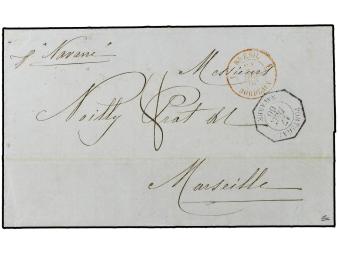 p. "Navarre"
Messieurs
Noilly Prat & C
Marseille
BRESIL
BORDEAUX